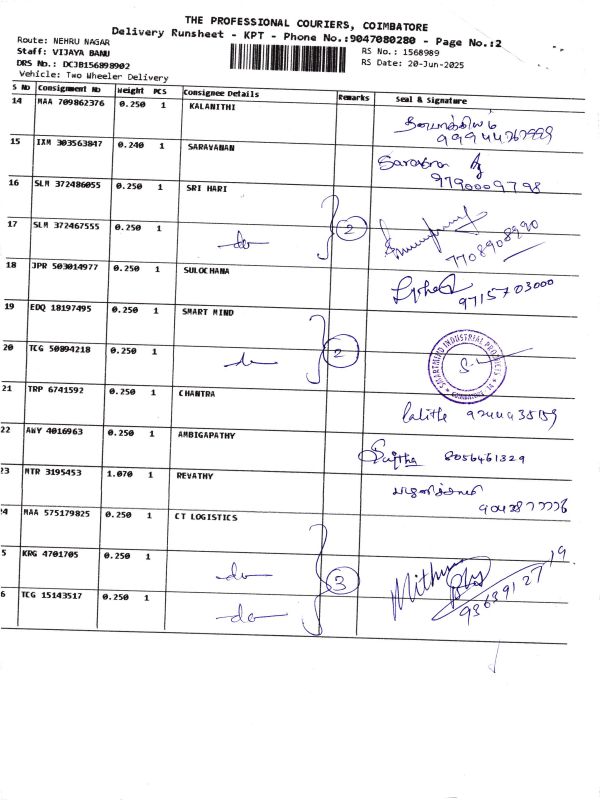 THE PROFESSIONAL COURIERS, COIMBATORE
Delivery Runsheet - KPT - Phone No.:9047080280 - Page No.:2
Route: NEHRU NAGAR
Staff: VIJAYA BANU
DRS No.: DCJB156898902
Vehicle: Two Wheeler Delivery
RS No.: 1568989
RS Date: 20-Jun-2025
S No Consignment No Weight PCS Consignee Details Remarks Seal & Signature
14 MAA 709862376 0.250 1 KALANITHI
15 IXM 303563847 0.240 1 SARAVANAN
9790009798
16 SLM 372486055 0.250 1 SRI HARI
17 SLM 372467555 0.250 1 do 2
7708908990
18 JPR 503014977 0.250 1 SULOCHANA
9715703000
19 EDQ 18197495 0.250 1 SMART MIND
20 TCG 50894218 0.250 1 do 2
SMARTMIND INDUSTRIAL PRODUCTS
COIMBATORE
21 TRP 6741592 0.250 1 CHANTRA
Lalitha
22 AWY 4016963 0.250 1 AMBIGAPATHY
Sujitha 8056461329
23 MTR 3195453 1.070 1 REVATHY
24 MAA 575179825 0.250 1 CT LOGISTICS
5 KRG 4701705 0.250 1 do 3
6 TCG 15143517 0.250 1 do
Mithun
9363912719